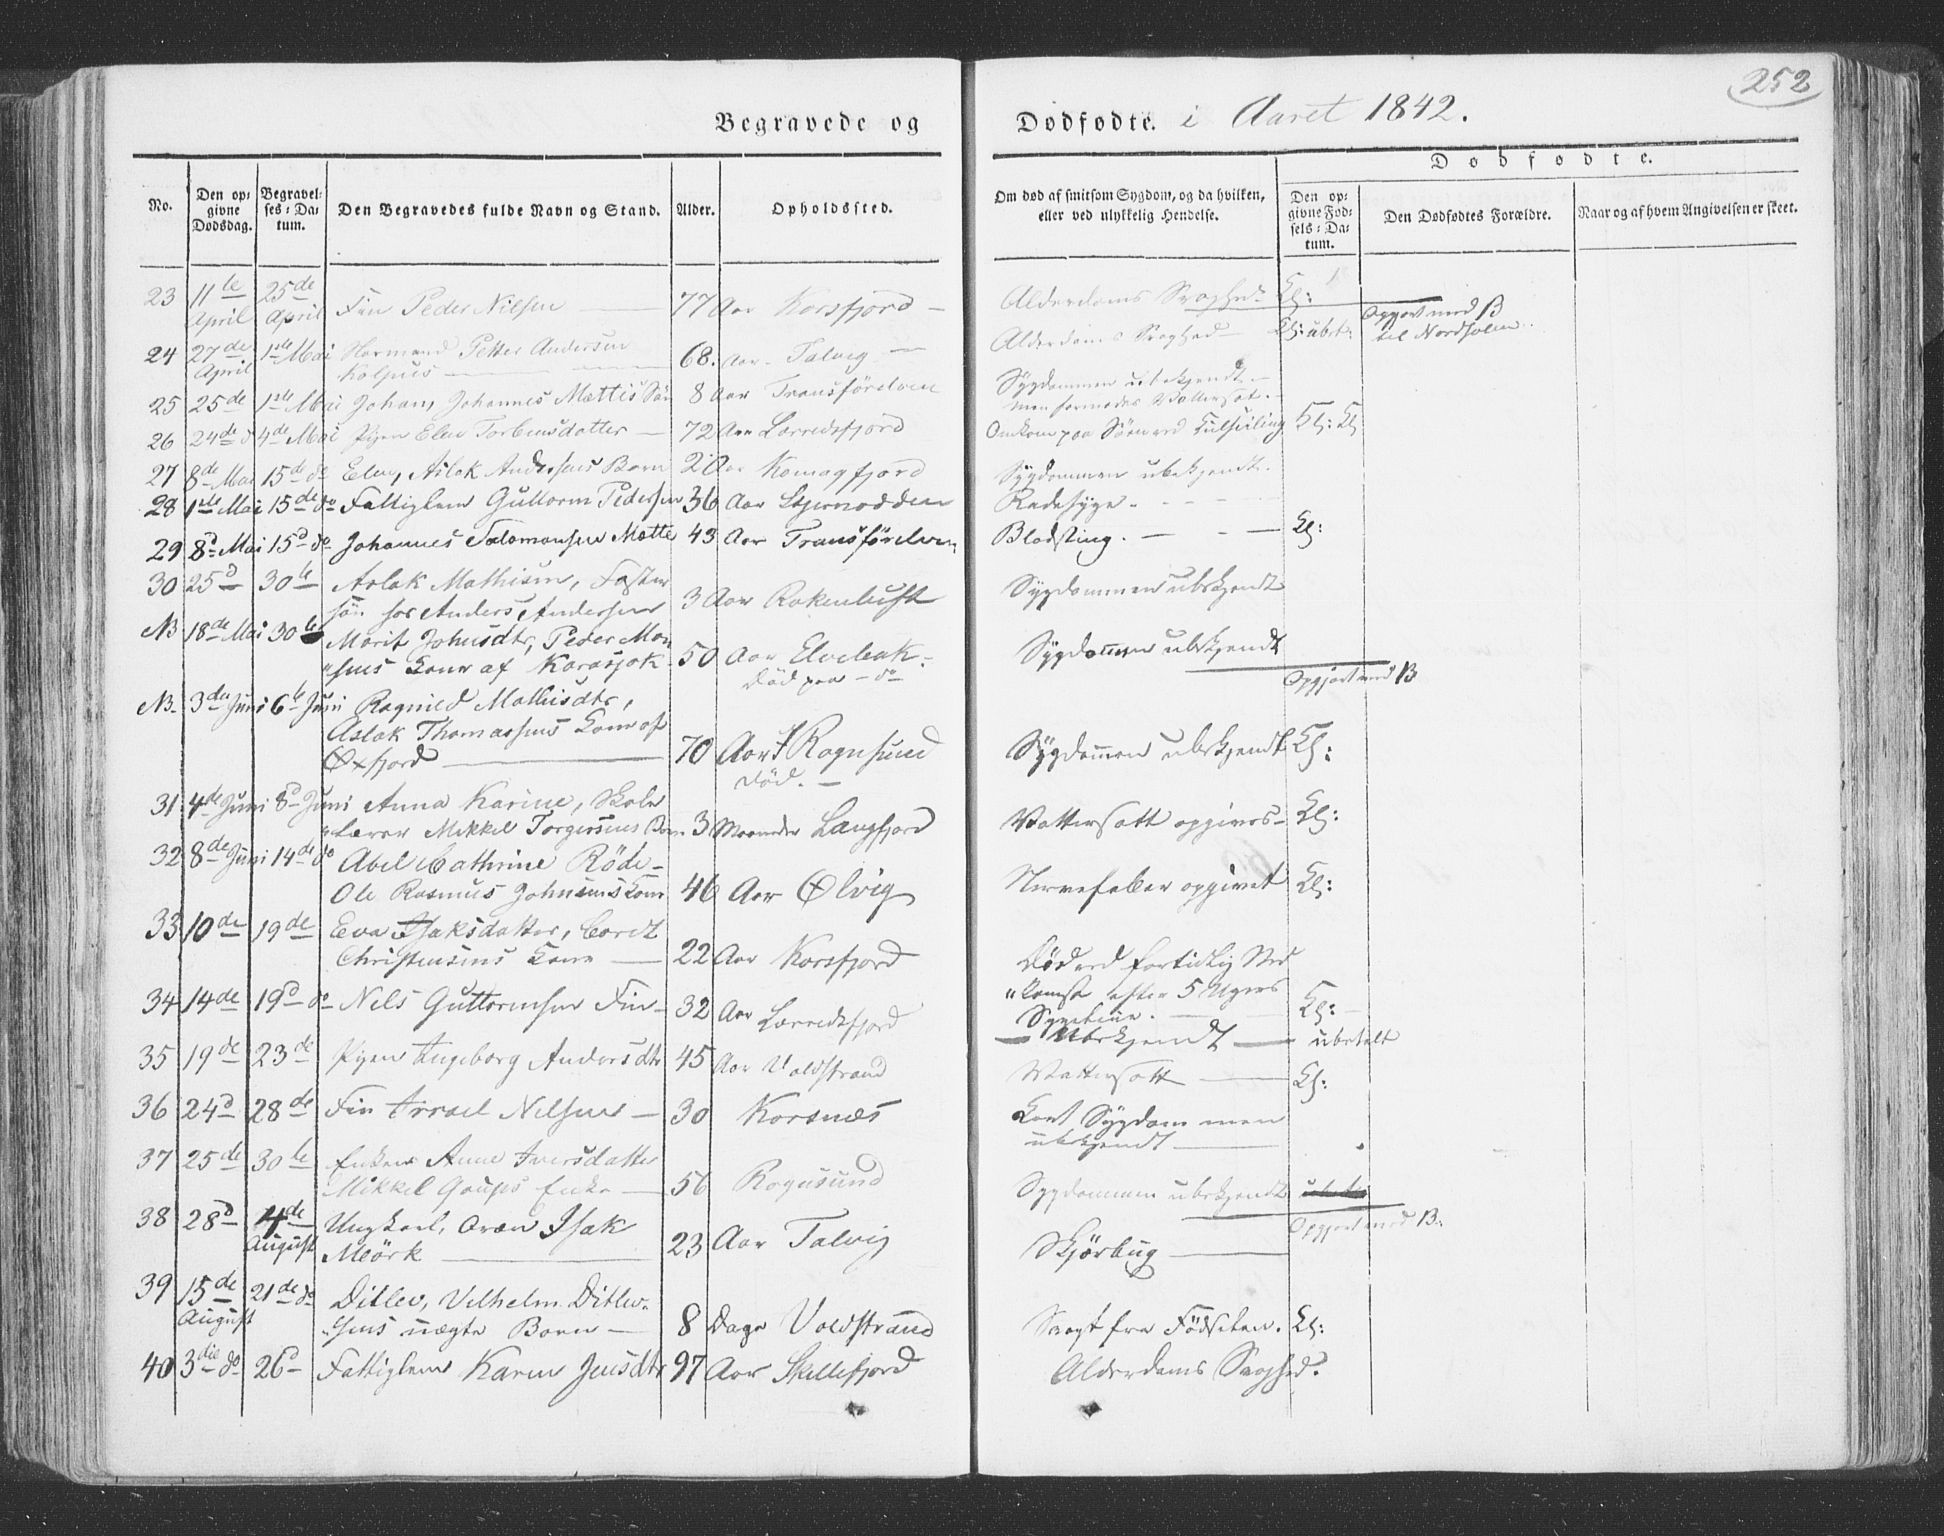 252
Begravede og Dødfødte. i Aaret 1842.
Dødfødte.
No.
Den opgivne Dødsdag.
Begravelses-Datum.
Den Begravedes fulde Navn og Stand.
Alder.
Opholdssted.
Om død af smitsom Sygdom, og da hvilken, eller ved ulykkelig Hendelse.
Den opgivne Fødsels-Datum.
Den Dødfødtes Forældre.
Naar og af hvem Angivelsen er skeet.
23 11te April 25de April Fin Peder Nilsen — 77 Aar Korsfjord — Alderdoms Svaghed Kl:
Opgjort med B til Nordsolen
24 27de April 1ste Mai Normand Petter Andersen 68. Aar Talvig — Alderdoms Svaghed — Kl: ubet:
25 25de 1ste Mai Johan, Johannes Mattis Søn 8 Aar Transfórelven Sygdommen ubekjendt —
men formodes Vattersot. —
26 24de d 4de Mai Pigen Elen Torbensdatter — 72 Aar Lerredsfjord Omkom paa Søen ved Kulseiling Kl: Kl
27 8de Mai 15de do Elen, Aslak Andersens Barn 2 Aar Komagfjord Sygdommen ubekjendt.
28 1ste Mai 15de do Fattiglem Guttorm Pedersen 36 Aar Stjernodden Radesyge. - - -
29 8d Mai 15d do Johannes Salomonsen Matte 43 Aar Transfórelven Blodsting. — - — Kl:
30 25d 30te Aslak Mathisen, Foster
søn hos Anders Andersen 3 Aar Rakenluft Sygdommen ubekjendt
NB 18de Mai 30te Marit Johnsdtr, Peder Mon
"sens Kone af Karasjok 50 Aar Elvebak. Sygdommen ubekjendt
Død paa — do
Opgjort med B
NB. 3die Juni 6te Juni Ragnild Mathisdtr,
Aslak Thomassens Kone af
Øxfjord — 70 Aar I Rognsund Sygdommen ubekjendt Kl:
død. —
31 4de Juni 8d Juni Anna Karine, Skole
"lærer Mikkel Torgersens Barn 3 Maaneder Langfjord Vattersott opgives — Kl:
32 8de Juni 14de do Abel Cathrine Røde —
Ole Rasmus Johnsens Kone 46 Aar Ølvig Nervefeber opgivet Kl:
33 10de 19de Eva Isaksdatter, Cordt
Christensens Kone — 22 Aar Korsfjord Død ved fortidlig Ned
"komst efter 5 Ugers
34 14de 19d do Nels Guttormsen Fin — 32 Aar Lerredsfjord Kl: —
— Ubekjendt — ubetalt
35 19de 23de Pigen Ingeborg Andersdtr 45 Aar Voldstrand Vattersott — Kl:
36 24d 28de Fin Israel Nilsen — 30 Korsnæs Kort Sygdom men
ubekjendt —
37 25de 30te Enken Anne Iversdatter
Mikkel Gaups Enke — 56 Rognsund Sygdommen ubekjendt
Opgjort med B.
38 28d 4de August Ungkarl, Qvæn Isak
Meörk — 23 Aar Talvig Skjörbug —
39 15de August 21de do Ditlev, Vilhelm Ditlev
"sens uægte Barn — 8 Dage Voldstrand Svagt fra Födselen. Kl:
40 3die do 26d Fattiglem Karen Jensdtr 97 Aar Skillefjord Alderdoms Svaghed.